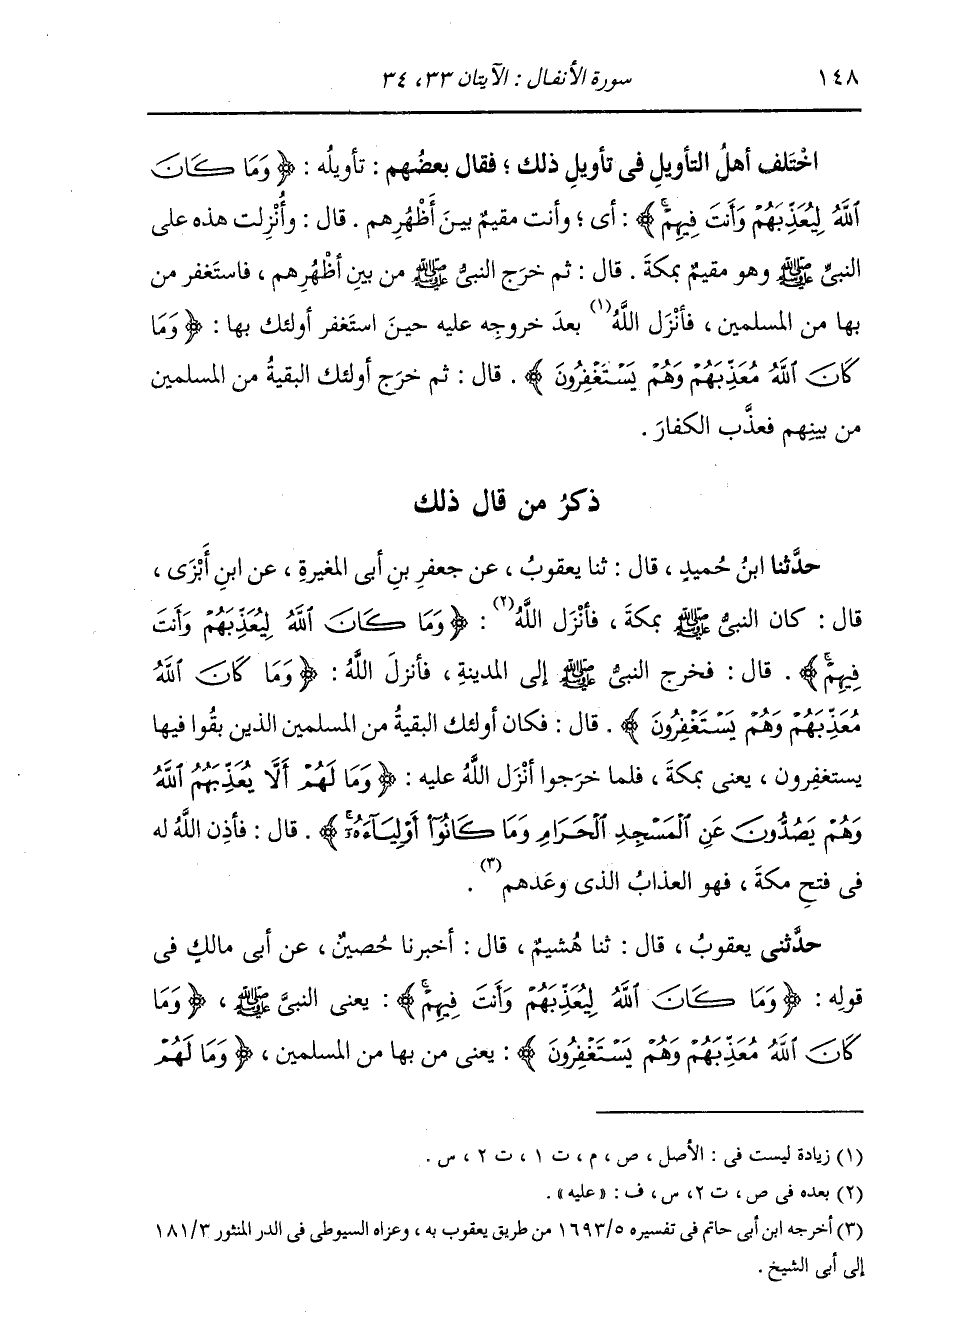 ١٤٨ سورة الأنفال : الآيتان ٣٣، ٣٤
اخْتَلف أهلُ التأويلِ فى تأويلِ ذلك ؛ فقال بعضُهم : تأويلُه : ﴿ وَمَا كَانَ
ٱللَّهُ لِيُعَذِّبَهُمْ وَأَنتَ فِيهِمْۚ ﴾ : أى ؛ وأنت مقيمٌ بينَ أَظْهُرِهم . قال : وأُنْزِلت هذه على
النبىِّ ﷺ وهو مقيمٌ بمكةَ . قال : ثم خرَج النبىُّ ﷺ من بينِ أظْهُرِهم ، فاستَغفر من
بها من المسلمين ، فأنْزَل اللَّهُ(١) بعدَ خروجِه عليه حينَ استَغفر أولئك بها : ﴿ وَمَا
كَانَ ٱللَّهُ مُعَذِّبَهُمْ وَهُمْ يَسْتَغْفِرُونَ ﴾ . قال : ثم خرَج أولئك البقيةُ من المسلمين
من بينِهم فعذَّب الكفارَ .
ذكرُ من قال ذلك
حدَّثنا ابنُ حُميدٍ ، قال : ثنا يعقوبُ ، عن جعفرِ بنِ أبى المغيرةِ ، عن ابنِ أَبْزَى ،
قال : كان النبىُّ ﷺ بمكةَ ، فأنْزَل اللَّهُ(٢) : ﴿ وَمَا كَانَ ٱللَّهُ لِيُعَذِّبَهُمْ وَأَنتَ
فِيهِمْۚ ﴾ . قال : فخرج النبىُّ ﷺ إلى المدينةِ ، فأنزلَ اللَّهُ : ﴿ وَمَا كَانَ ٱللَّهُ
مُعَذِّبَهُمْ وَهُمْ يَسْتَغْفِرُونَ ﴾ . قال : فكان أولئك البقيةُ من المسلمين الذين بقُوا فيها
يستغفِرون ، يعنى بمكةَ ، فلما خرَجوا أنْزَل اللَّهُ عليه : ﴿ وَمَا لَهُمْ أَلَّا يُعَذِّبَهُمُ ٱللَّهُ
وَهُمْ يَصُدُّونَ عَنِ ٱلْمَسْجِدِ ٱلْحَرَامِ وَمَا كَانُوٓا۟ أَوْلِيَآءَهُۥٓۚ ﴾ . قال : فأذِن اللَّهُ له
فى فتحِ مكةَ ، فهو العذابُ الذى وعَدهم(٣) .
حدَّثنى يعقوبُ ، قال : ثنا هُشيمٌ ، قال : أخبرنا حُصينٌ ، عن أبى مالكٍ فى
قولِه : ﴿ وَمَا كَانَ ٱللَّهُ لِيُعَذِّبَهُمْ وَأَنتَ فِيهِمْۚ ﴾ : يعنى النبىَّ ﷺ ، ﴿ وَمَا
كَانَ ٱللَّهُ مُعَذِّبَهُمْ وَهُمْ يَسْتَغْفِرُونَ ﴾ : يعنى من بها من المسلمين ، ﴿ وَمَا لَهُمْ
(١) زيادة ليست فى : الأصل ، ص ، م ، ت ١ ، ت ٢ ، س .
(٢) بعده فى ص ، ت ٢، س ، ف : « عليه » .
(٣) أخرجه ابن أبى حاتم فى تفسيره ١٦٩٣/٥ من طريق يعقوب به ، وعزاه السيوطى فى الدر المنثور ١٨١/٣
إلى أبى الشيخ .